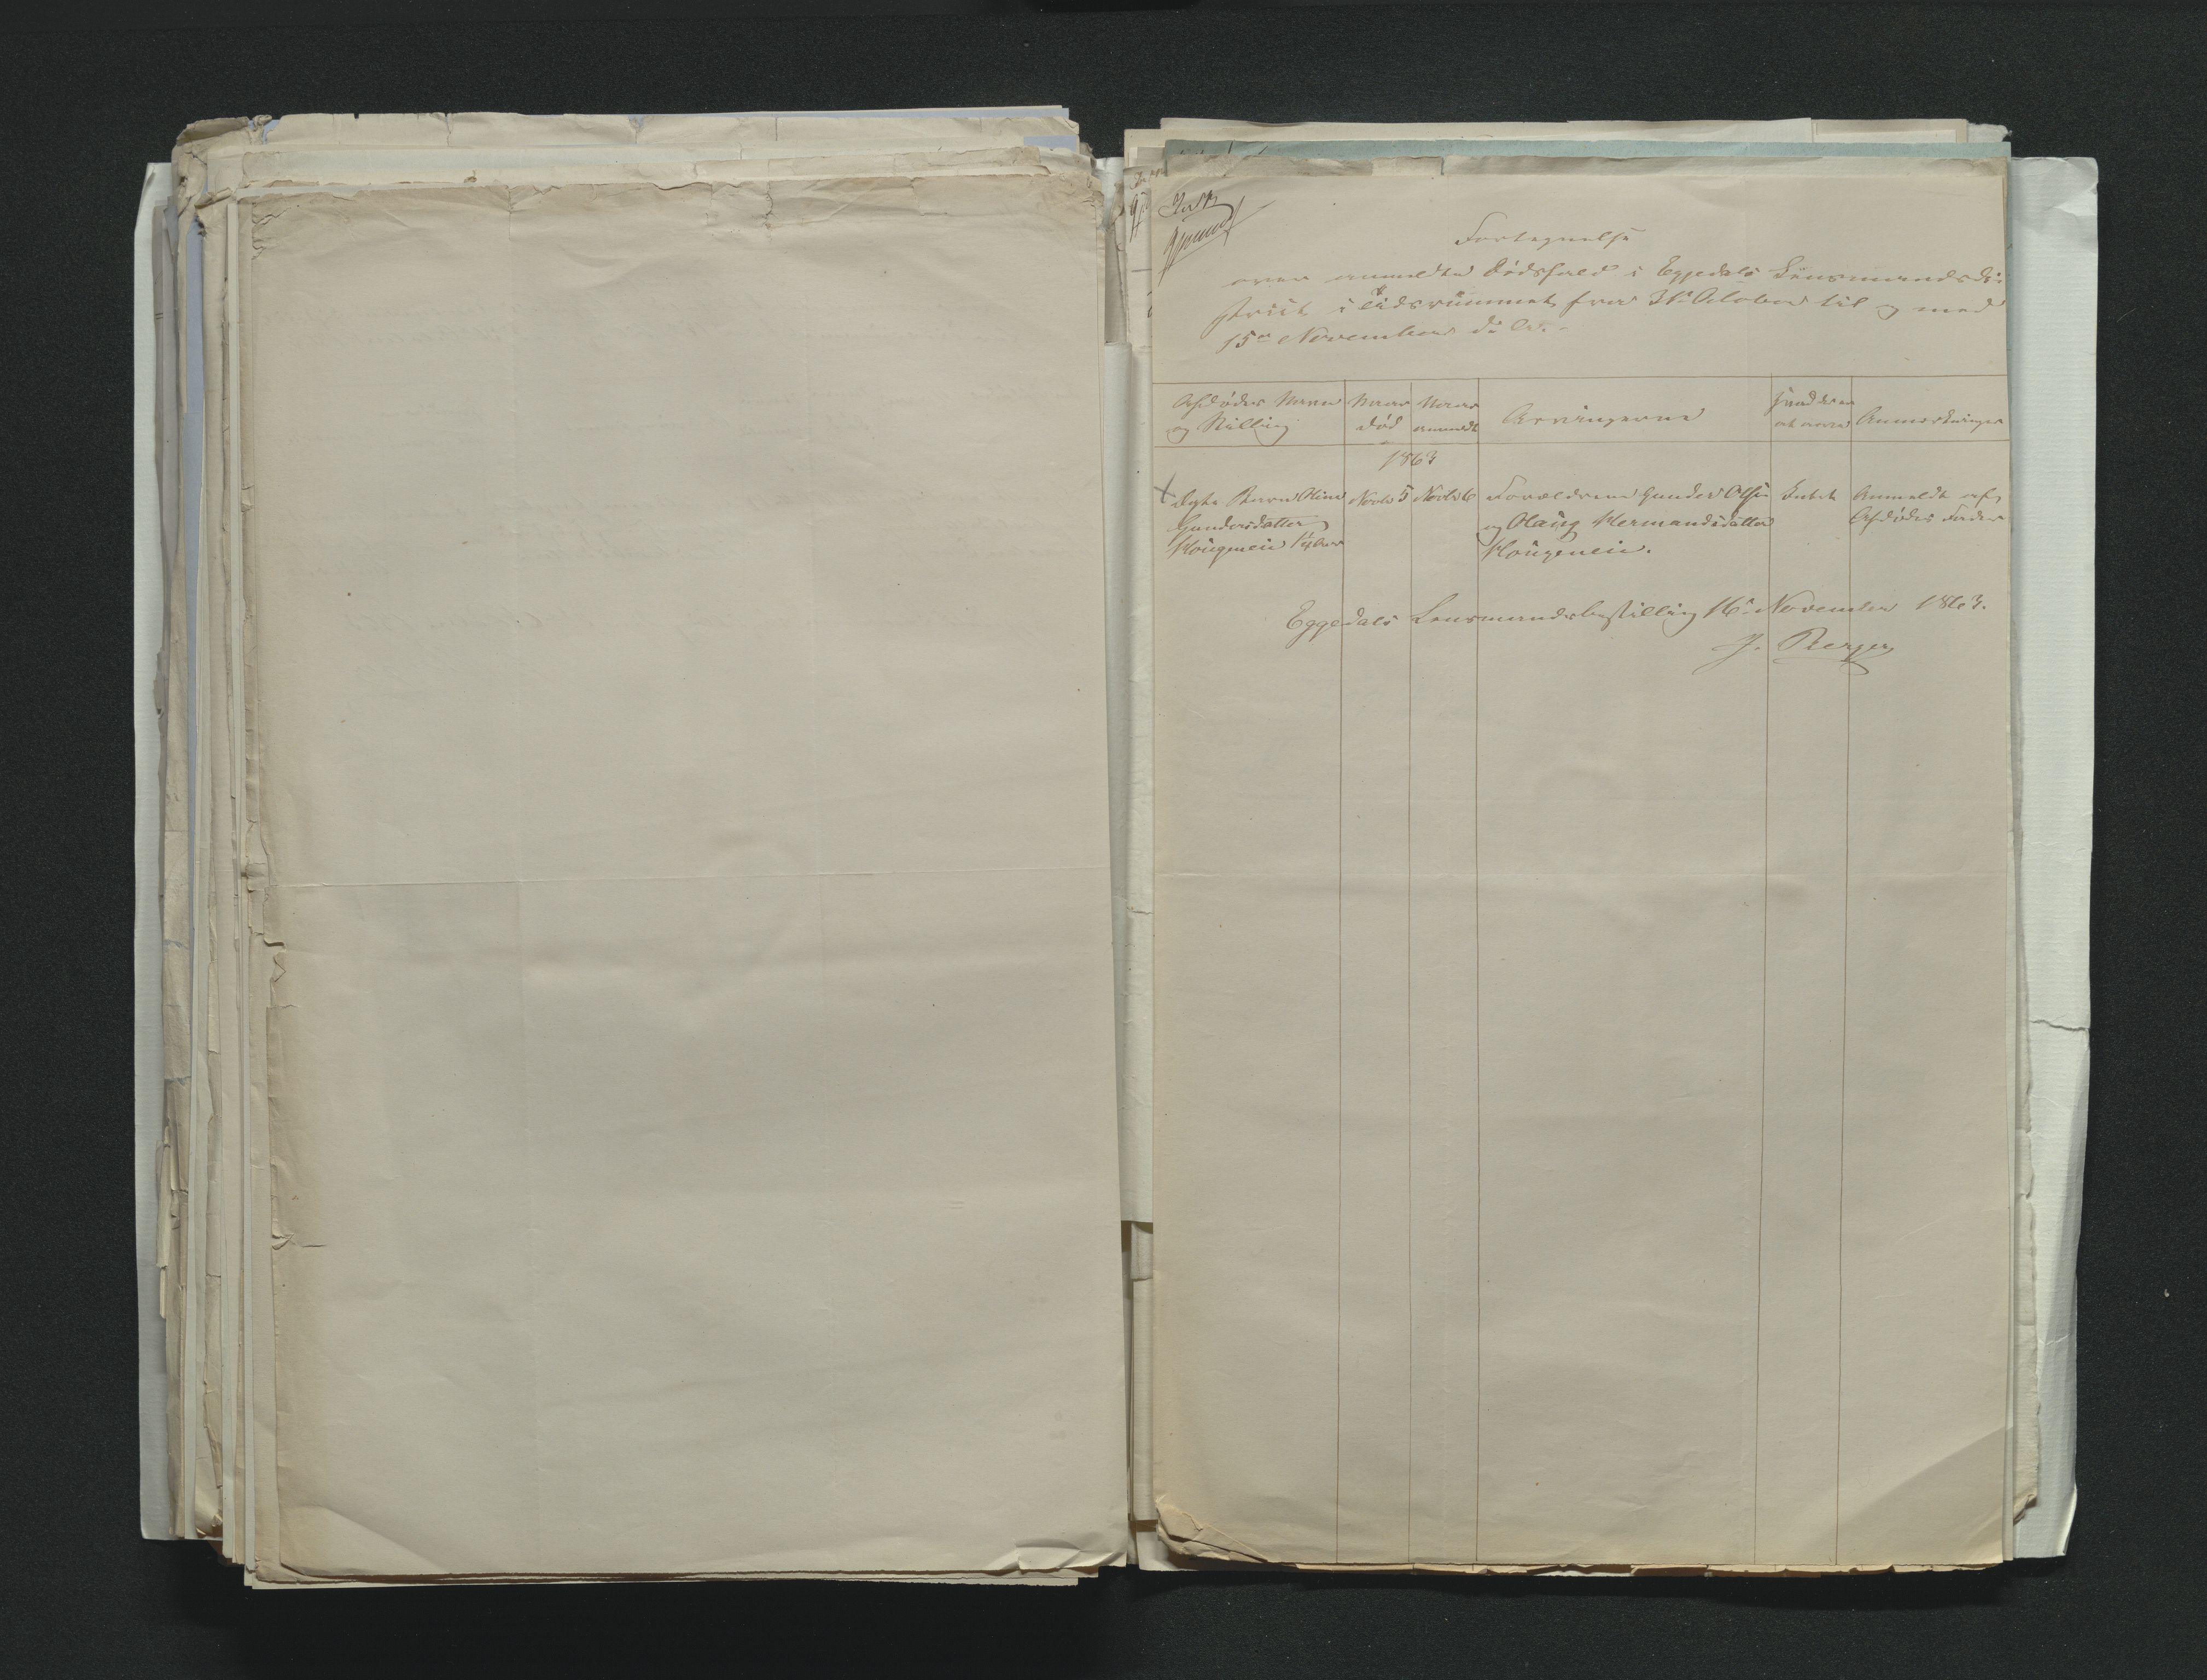 Fortegnelse
over anmeldte Dødsfald i Eggedals Lensmandsdi-
strict i Tidsrummet fra 31te October til og med
15de November d. A.
Afdødes Navn og Stilling
Naar død
Naar anmeldt
Arvingerne
Anmærkninger
1863
Ægte Barn
Gundersdatter
Hougeneie
Novbr 5
Novbr 6
Forældrene Gunder Olsen
og Olaug Hermandsdatter
Hougeneie.
Intet
Anmeldt af
Afdødes Fader
Eggedals Lensmandsbestilling 16de November 1863.
J. Berger